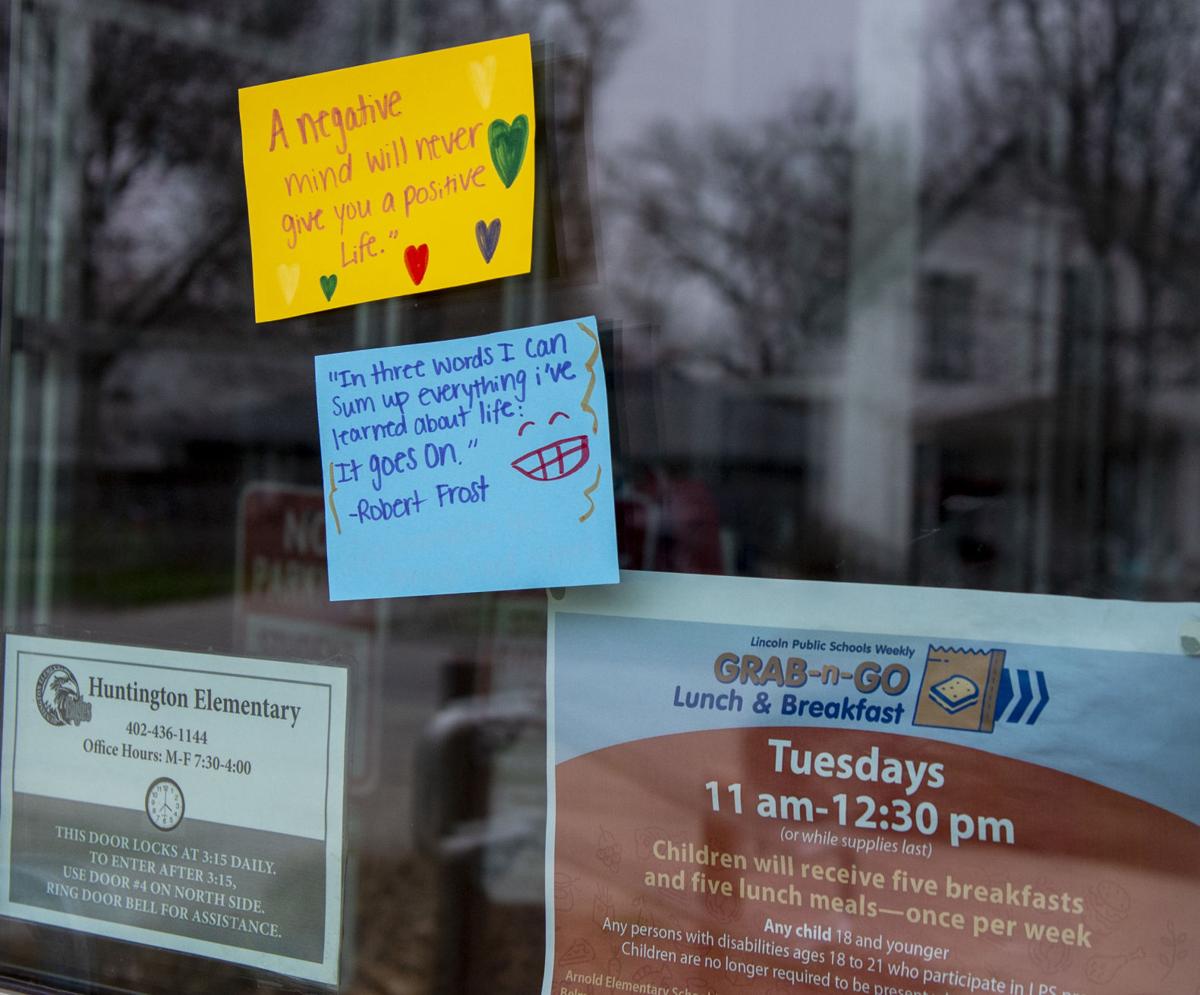 A negative
mind will never
give you a positive
Life."
"In three words I can
sum up everything i've
learned about life:
It goes on."
-Robert Frost
NO
Huntington Elementary
402-436-1144
Office Hours: M-F 7:30-4:00
THIS DOOR LOCKS AT 3:15 DAILY.
TO ENTER AFTER 3:15,
USE DOOR #4 ON NORTH SIDE.
RING DOOR BELL FOR ASSISTANCE.
Lincoln Public Schools Weekly
GRAB-n-GO
Lunch & Breakfast
Tuesdays
11 am-12:30 pm
(or while supplies last)
Children will receive five breakfasts
and five lunch meals—once per week
Any child 18 and younger
Any persons with disabilities ages 18 to 21 who participate in LPS
Children are no longer required to be
Arnold Elementary